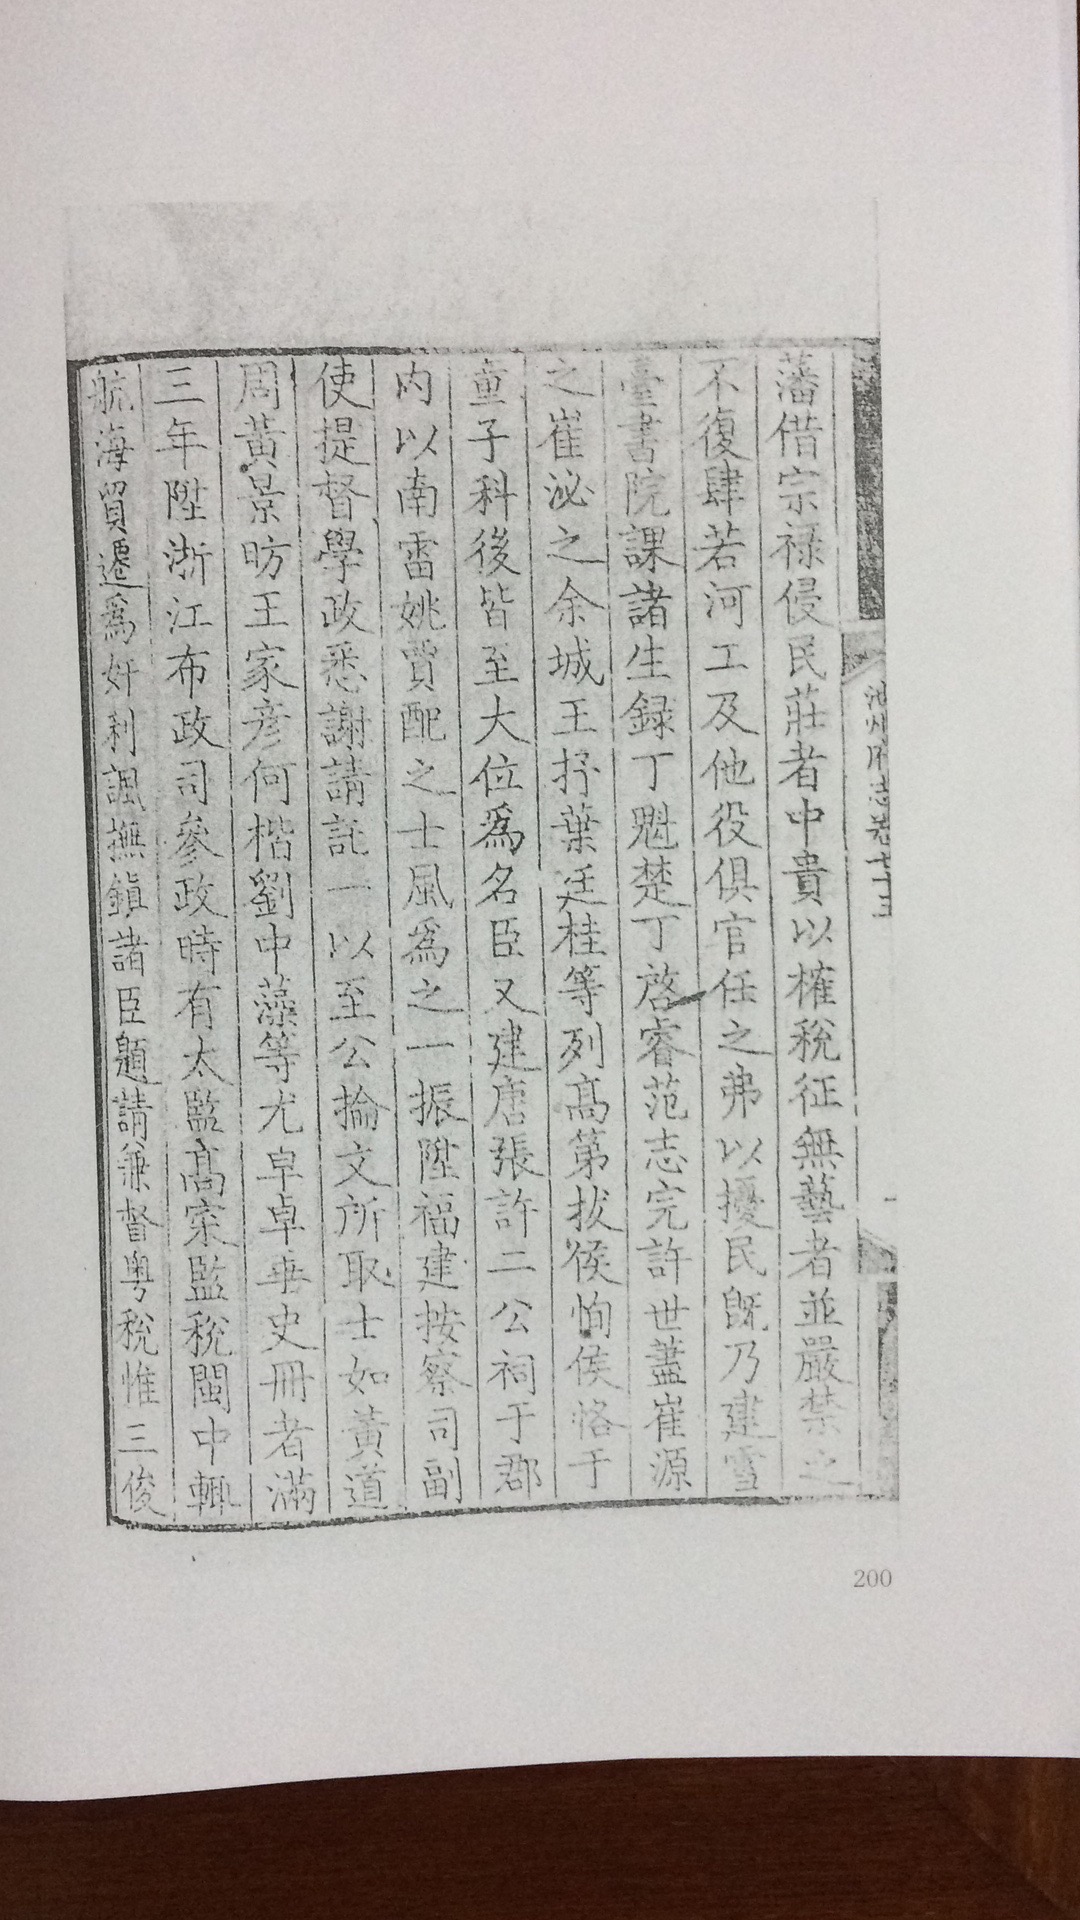 池州府志卷七十三
藩借宗祿侵民莊者中貴以榷稅征無藝者並嚴禁之
不復肆若河工及他役俱官任之弗以擾民旣乃建雪
臺書院課諸生録丁魁楚丁啓睿范志完許世藎崔源
之崔泌之余城王抒葉廷桂等列髙第拔侯恂侯恪于
童子科後皆至大位爲名臣又建唐張許二公祠于郡
内以南雷姚賈配之士風爲之一振陞福建按察司副
使提督學政悉謝請託一以至公掄文所取士如黃道
周黃景昉王家彦何楷劉中藻等尤卓卓垂史冊者滿
三年陞浙江布政司叅政時有太監髙寀監稅閩中輒
航海貿遷爲奸利諷撫鎮諸臣題請兼督粤稅惟三俊
200